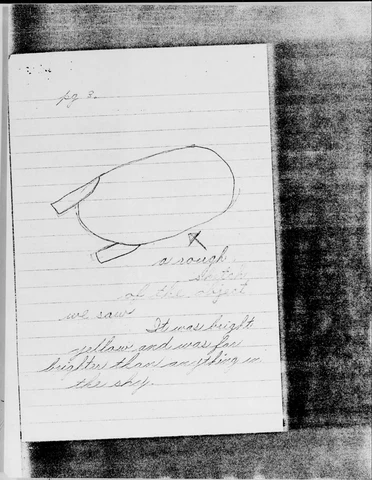 pg 3.
a rough
sketch
of the object
we saw
It was bright
yellow and was far
brighter than anything in
the sky.